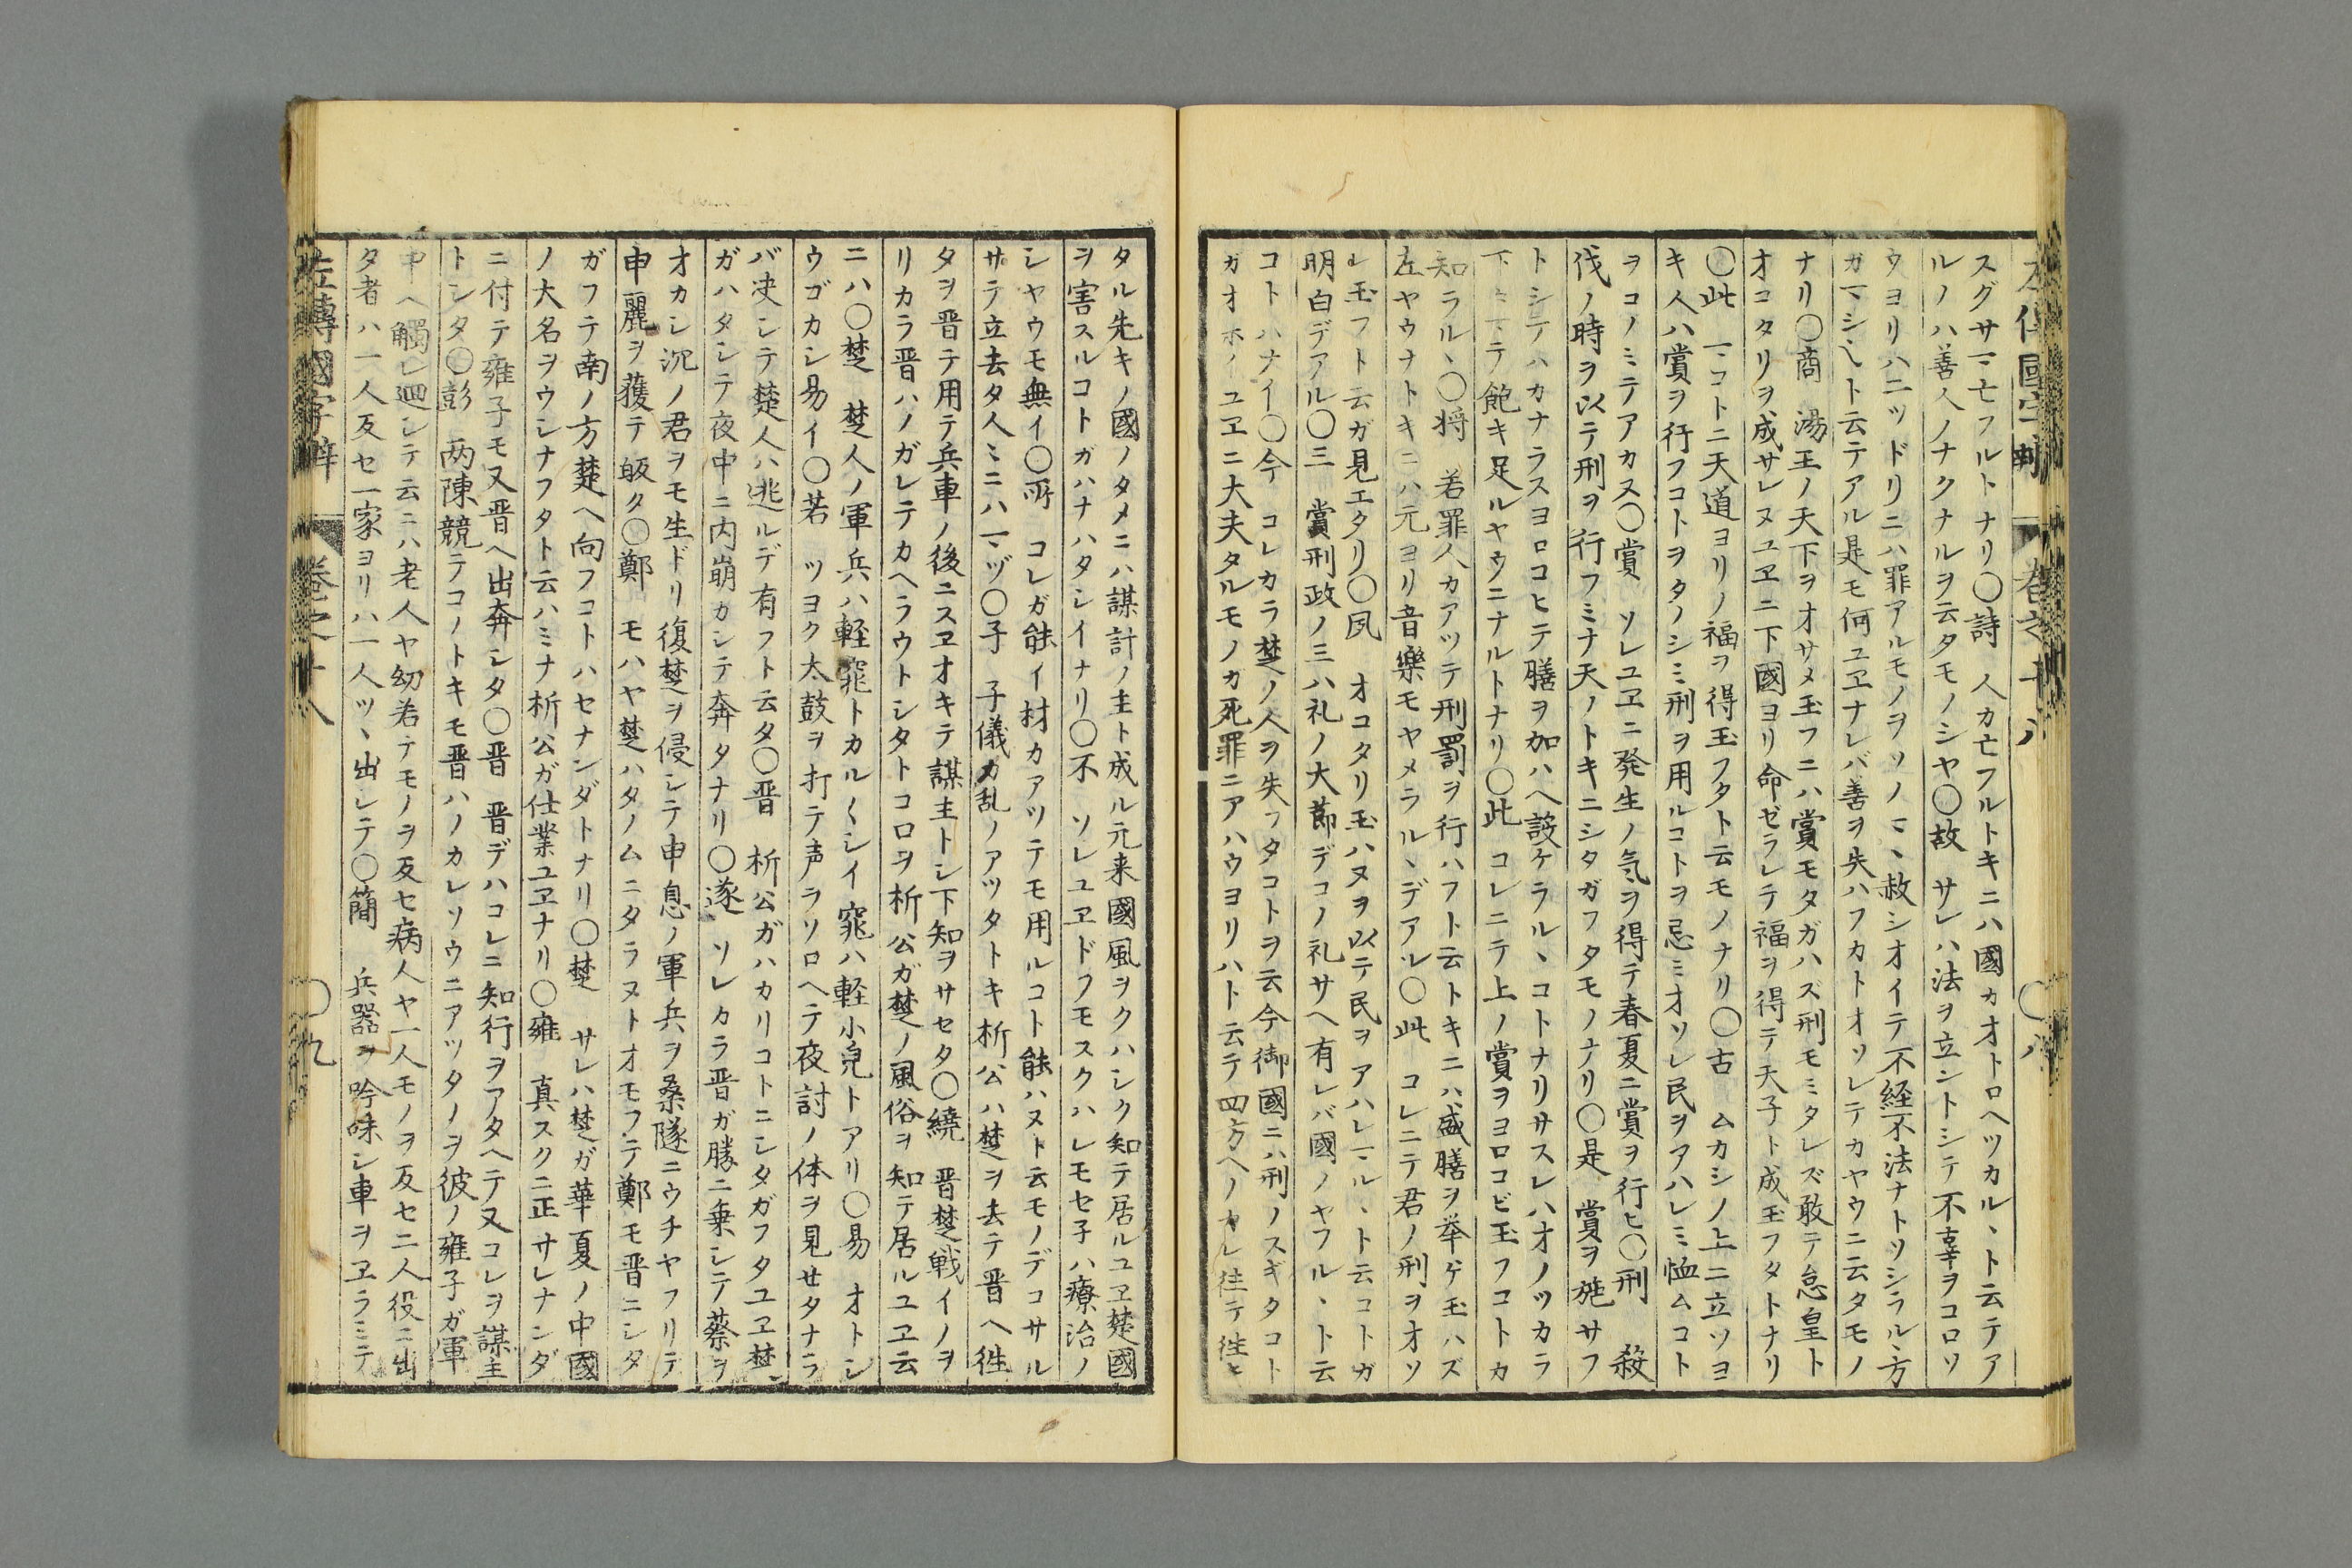 左傳國字辯 卷之十八 〇八
スグサマ亡フルトナリ〇詩 人カ亡フルトキニハ國カオトロヘツカルヽト云テア
ルノハ善人ノナクナルヲ云タモノシヤ〇故 サレハ法ヲ立ントシテ不辜ヲコロソ
ウヨリハ二ツドリニハ罪アルモノヲソノマヽ赦シオイテ不経不法ナトソシラルヽ方
ガマシ〳〵ト云テアル是モ何ユヱナレバ善ヲ失ハフカトオソレテカヤウニ云タモノ
ナリ〇商 湯王ノ天下ヲオサメ玉フニハ賞モタガハズ刑モミタレズ敢テ怠皇ト
オコタリヲ成サレヌユヱニ下國ヨリ命ゼラレテ福ヲ得テ天子ト成玉フタトナリ
〇此 マコトニ天道ヨリノ福ヲ得玉フタト云モノナリ〇古 ムカシノ上ニ立ツヨ
キ人ハ賞ヲ行フコトヲタノシミ刑ヲ用ルコトヲ忌ミオソレ民ヲアハレミ恤ムコト
ヲコノミテアカヌ〇賞 ソレユヱニ発生ノ気ヲ得テ春夏ニ賞ヲ行ヒ〇刑 殺
伐ノ時ヲ以テ刑ヲ行フミナ天ノトキニシタガフタモノナリ〇是 賞ヲ施サフ
トシテハカナラスヨロコヒテ膳ヲ加ハヘ設ケラルヽコトナリサスレハオノツカラ
下々マテ飽キ足ルヤウニナルトナリ〇此 コレニテ上ノ賞ヲヨロコビ玉フコトカ
知ラルヽ〇将 若罪人カアツテ刑罰ヲ行ハフト云トキニハ盛膳ヲ举ケ玉ハズ
左ヤウナトキニハ元ヨリ音樂モヤメラルヽデアル〇此 コレニテ君ノ刑ヲオソ
レ玉フト云ガ見エタリ〇夙 オコタリ玉ハヌヲ以テ民ヲアハレマルヽト云コトガ
明白デアル〇三 賞刑政ノ三ハ礼ノ大節デコノ礼サヘ有レバ國ノヤフルヽト云
コトハナイ〇今 コレカラ楚ノ人ヲ失フタコトヲ云今御國ニハ刑ノスギタコト
ガオホイユヱニ大夫タルモノカ死罪ニアハウヨリハト云テ四方ヘノカレ往テ往キ
タル先キノ國ノタメニハ謀計ノ主ト成ル元来國風ヲクハシク知テ居ルユヱ楚國
ヲ害スルコトガハナハタシイナリ〇不 ソレユヱドフモスクハレモセ子ハ療治ノ
シヤウモ無イ〇所 コレガ能イ材カアツテモ用ルコト能ハヌト云モノデコサル
サテ立去タ人々ニハマヅ〇子 子儀カ乱ノアツタトキ析公ハ楚ヲ去テ晋ヘ徃
タヲ晋テ用テ兵車ノ後ニスヱオキテ謀主トシ下知ヲサセタ〇繞 晋楚戦イノヲ
リカラ晋ハノガレテカヘラウトシタトコロヲ析公ガ楚ノ風俗ヲ知テ居ルユヱ云
ニハ〇楚 楚人ノ軍兵ハ軽窕トカル〳〵シイ窕ハ軽小皃トアリ〇易 オトシ
ウゴカシ易イ〇若 ツヨク太鼓ヲ打テ声ヲソロヘテ夜討ノ体ヲ見せタナラ
バ决シテ楚人ハ逃ルデ有フト云タ〇晋 析公ガハカリコトニシタガフタユヱ楚
ガハタシテ夜中ニ内崩カシテ奔タナリ〇遂 ソレカラ晋ガ勝ニ乗シテ蔡ヲ
オカシ沉ノ君ヲモ生ドリ復楚ヲ侵シテ申息ノ軍兵ヲ桑隧ニウチヤフリテ
申麗ヲ獲テ皈タ〇鄭 モハヤ楚ハタノムニタラヌトオモフテ鄭モ晋ニシタ
ガフテ南ノ方楚ヘ向フコトハセナンダトナリ〇楚 サレハ楚ガ華夏ノ中國
ノ大名ヲウシナフタト云ハミナ析公ガ仕業ユヱナリ〇雍 真スクニ正サレナンダ
ニ付テ雍子モ又晋ヘ出奔シタ〇晋 晋デハコレニ知行ヲアタヘテ又コレヲ謀主
トシタ〇彭 两陳競テコノトキモ晋ハノカレソウニアツタノヲ彼ノ雍子ガ軍
中ヘ觸レ廻シテ云ニハ老人ヤ幼若ナモノヲ反セ病人ヤ一人モノヲ反セ二人役ニ出
タ者ハ一人反セ一家ヨリハ一人ツヽ出レテ〇簡 兵器ヲ吟味シ車ヲヱラミテ
左傳國字辯 卷之十八 〇九